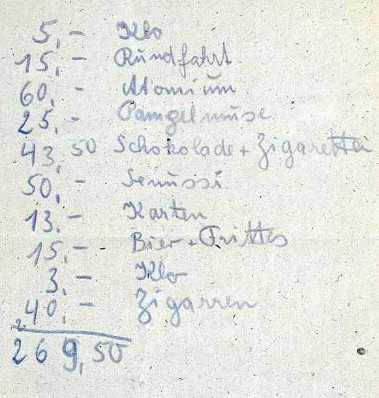 5,- Klo
15,- Rundfahrt
60,- Atomium
25,- Pampelmuse
43,50 Schokolade + Zigaretten
50,- Genussi
13.- Karten
15,- Bier + Frittes
3,- Klo
40,- Zigarren
269,50